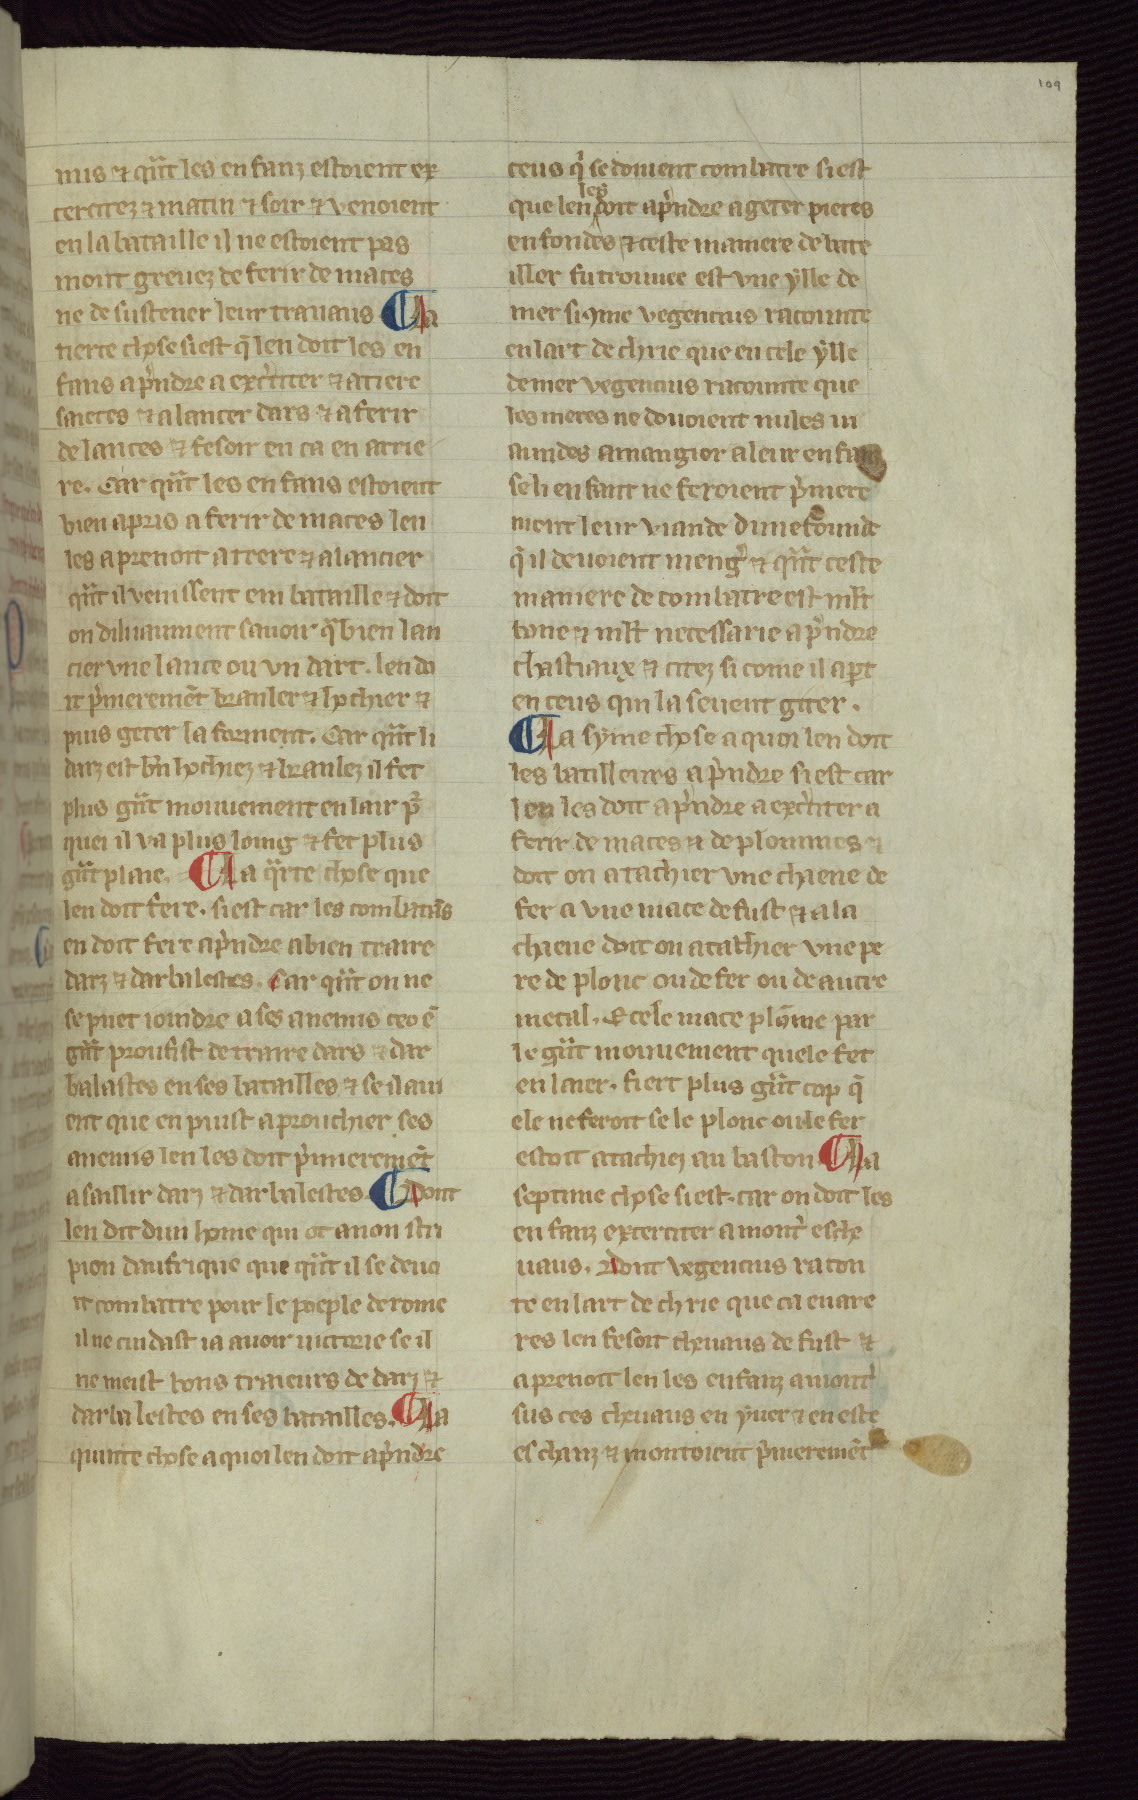 109
mis ⁊ qᷓnt les enfanz estoient ex
cercitez ⁊ matin ⁊ soir ⁊ venoient
en la bataille il ne estoient pas
mout greuez de ferir de maces
ne de sustener leur trauaus ¶ La
tierce chose si est q̄ len doit les en
fans ap̓ndre a exc̓citer ⁊ a tiere
saietes ⁊ a lancer dars ⁊ a ferir
de lances ⁊ fesoir en ca en arrie
re. Car qᷓnt les enfans estoient
bien apris a ferir de maces len
les aprenoit a trere ⁊ a lancier
qᷓnt il venissent em bataille ⁊ doit
on diluaument sauoir q̄ bien lan
cier vne lance ou vn dart. len do
it p̓meremēt branler ⁊ hochier ⁊
puis geter la forment. Car qᷓnt li
darz est bn̄ hochiez ⁊ branlez il fet
plus gᷓnt mouuement en lair p̄
quei il va plus loing ⁊ fet plus
gᷓnt plaie. ¶ La qᷓrte chose que
len doit fere. si est car les combatās
en doit fere ap̓ndre a bien traire
darz ⁊ darbalestes. Car qᷓnt on ne
se puet ioindre a ses anemis ceo ē
gᷓnt proufist de traire dars ⁊ dar
balastes en ses batailles ⁊ se il aui
ent que en puist aprouchier ses
anemis len les doit p̓meremēt
asaillir darz ⁊ darbalestes. ¶ Dont
len dit dun home qui ot a non sci
pion daufrique que qᷓnt il se deuo
it combatre pour le poeple de rome
il ne cuidast ia auoir uictorie se il
ne meust bons traieurs de darz ⁊
darbalestes en ses batailles. ¶ La
quinte chose a quoi len doit ap̓ndre
ceus q̓ se doiuent combatre si est
que len les doit ap̓ndre a geter pieres
en fondes ⁊ ceste maniere de bate
iller fu trouuee est vne ylle de
mer si 9me vegencius racounte
en lart de chrie que en cele ylle
de mer vegencius racounte que
les meres ne donoient nules ui
aundes a mangior a leur enfanz
se li enfant ne feroient p̓mere
ment leur viande dune founde
q̓ il deuoient meng̓ ⁊ qᷓnt ceste
maniere de combatre est mlt̄
bone ⁊ mlt̄ necessarie a p̓ndre
chastiaux ⁊ citez si come il apt̄
en ceus qui la seuent giter.
¶ La syme chose a quoi len doit
les batilleurs ap̓ndre si est car
len les doit ap̓ndre a exc̓citer a
ferir de maces ⁊ de plommes ⁊
doit on atachier vne chaene de
fer a vne mace de fust ⁊ a la
chaene doit on atachier vne pe
re de plonc ou de fer ou de autre
metal. E cele mace plōme par
le gᷓnt mouuement quele fet
en laier. fiert plus gᷓnt cop q̄
ele ne feroit se le plonc ou le fer
estoit atachiez au baston ¶ La
septime chose si est. car on doit les
enfanz excerciter a mont̓ es che
uaus. Dont vegencius racon
te en lart de chrie que ca enare
res len fesoit cheuaus de fust ⁊
aprenoit len les enfanz a mont̓
sus ces cheuaus en yuer ⁊ en este
es chanz ⁊ montoient p̓meremēt